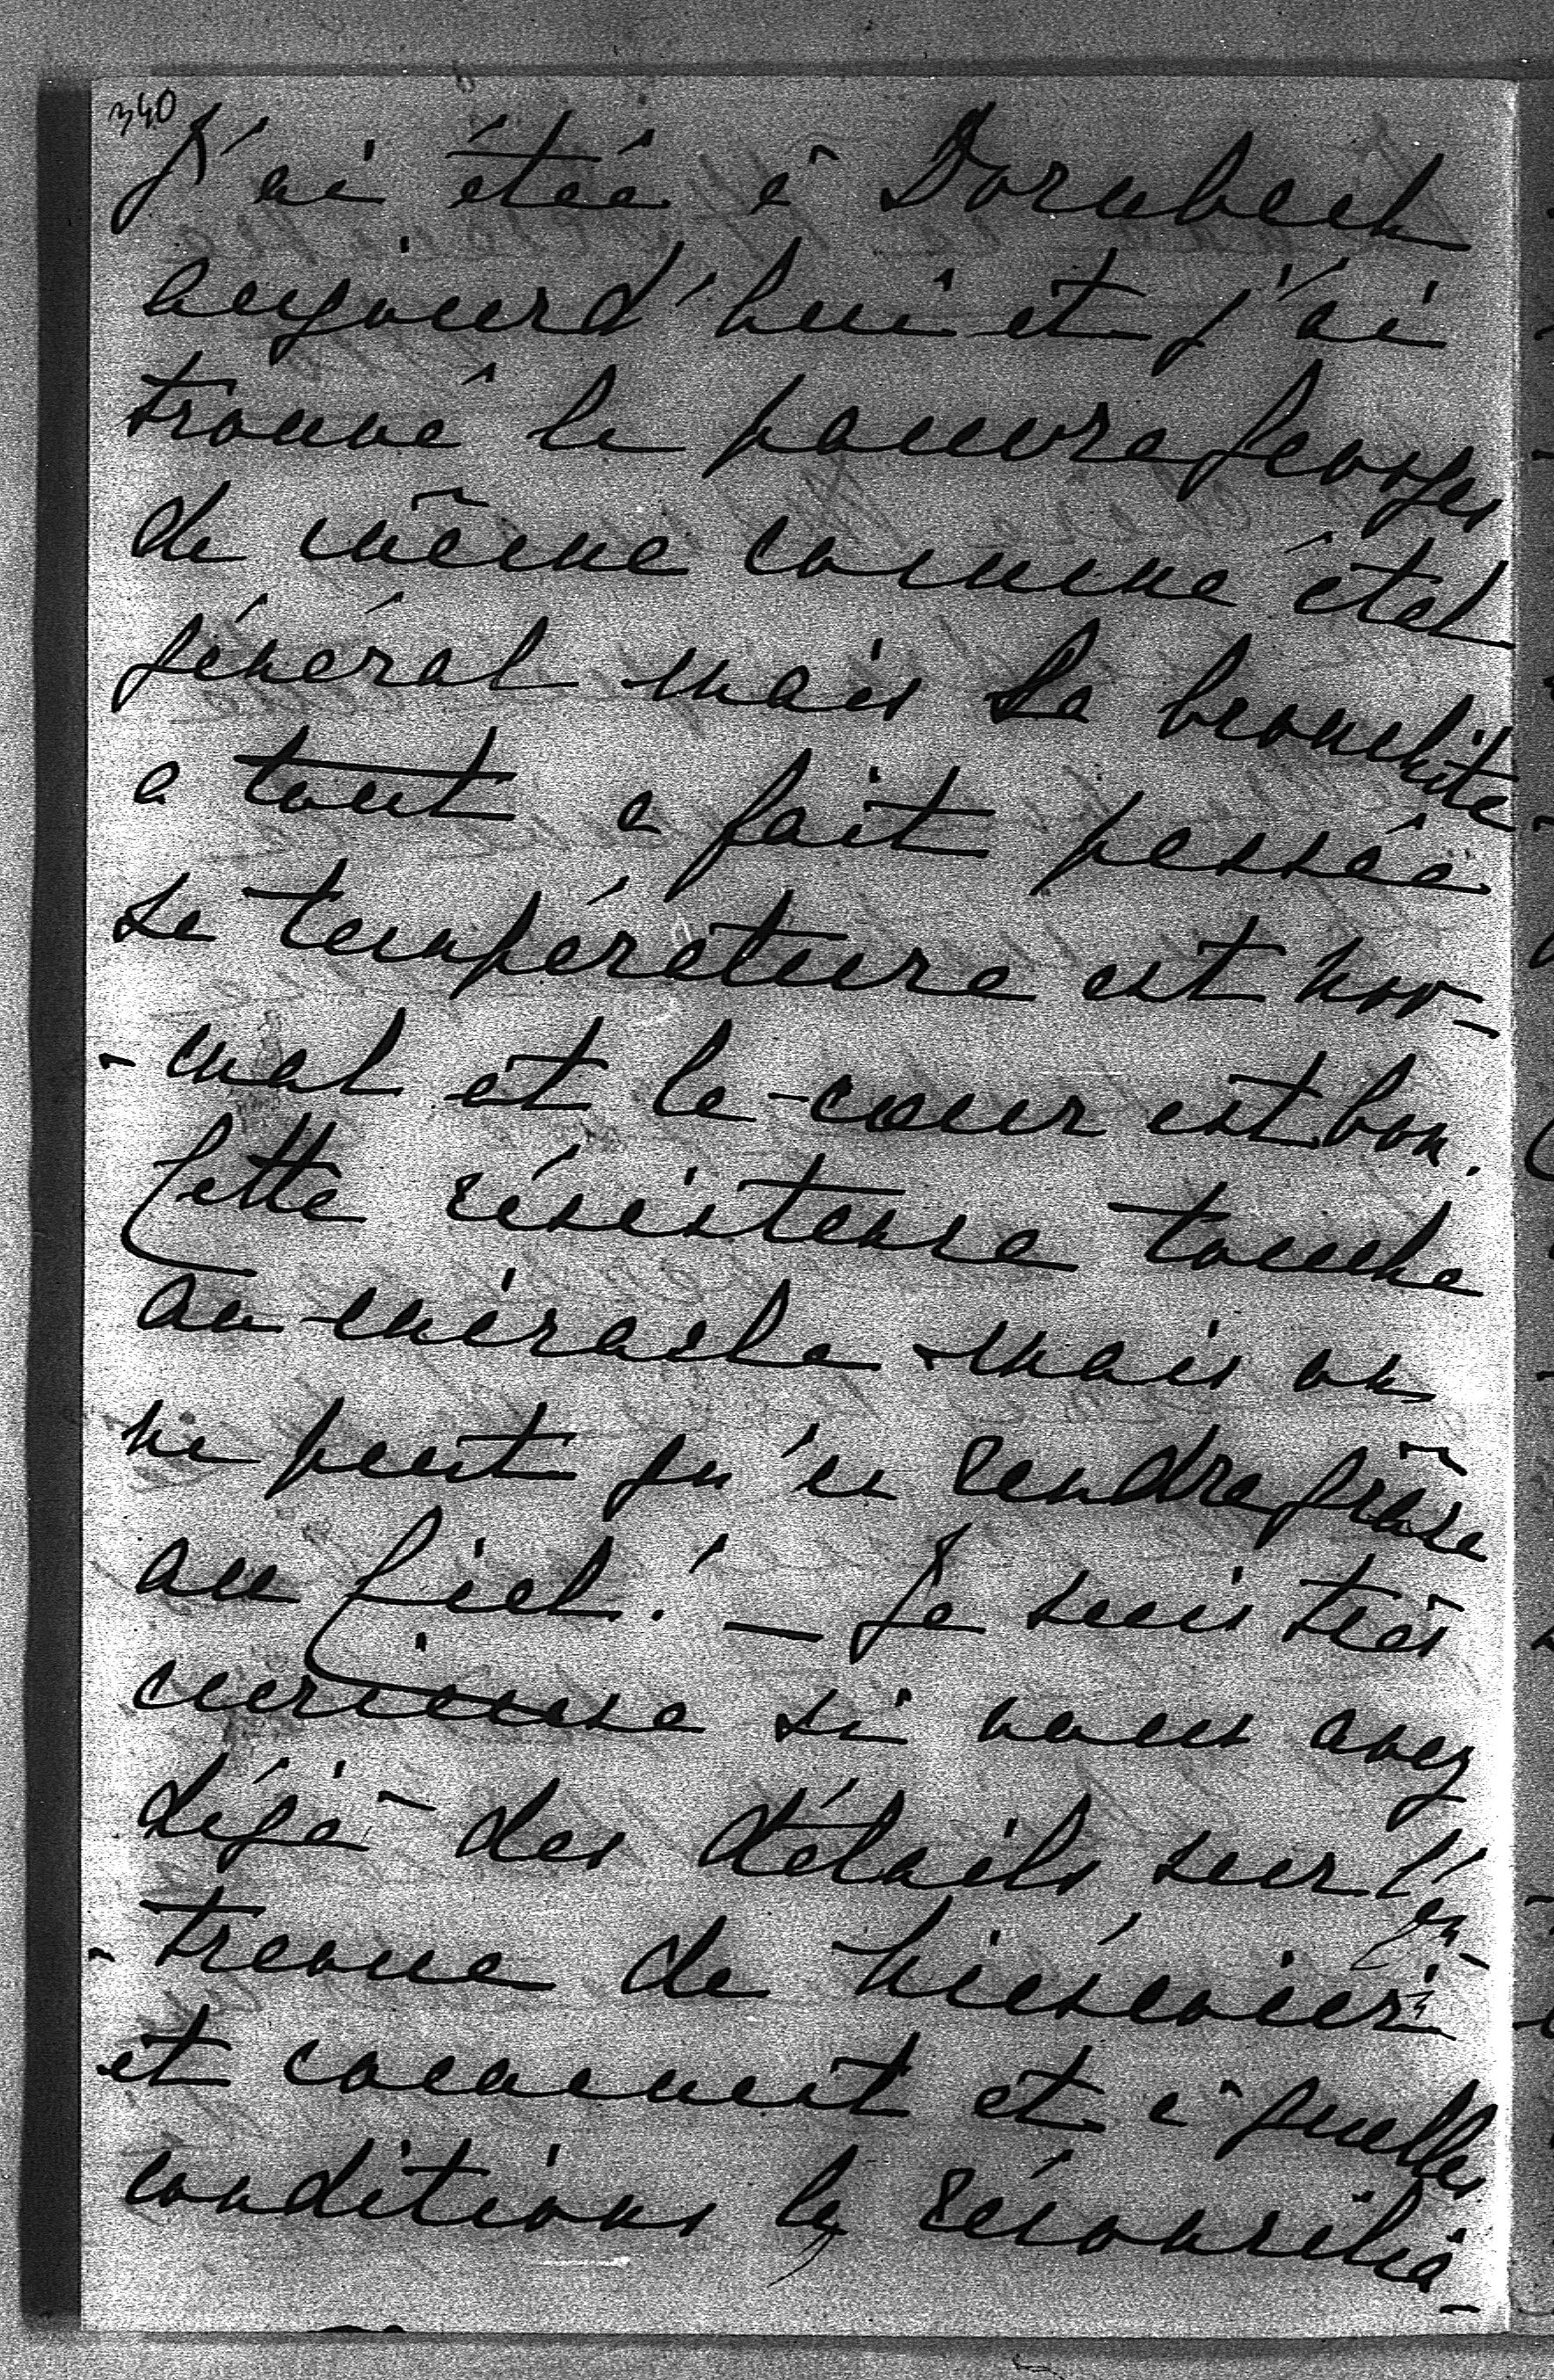 340
J'ai étée à Dornbach
aujourd'hui et j'ai
trouvé le pauvre Georges
de même comme état
général mais la bronchite
a tout a fait passée
sa température est nor-
-mal et le coeur est bon.
Cette résistence touche
au miracle mais on
ne peut qu'en rendre grâce
au Ciel! _ Je suis très
curieuse si vous avez
déjà des détails sur l'en-
-trevue de
et comment et à quelles
conditions la réconcilia-